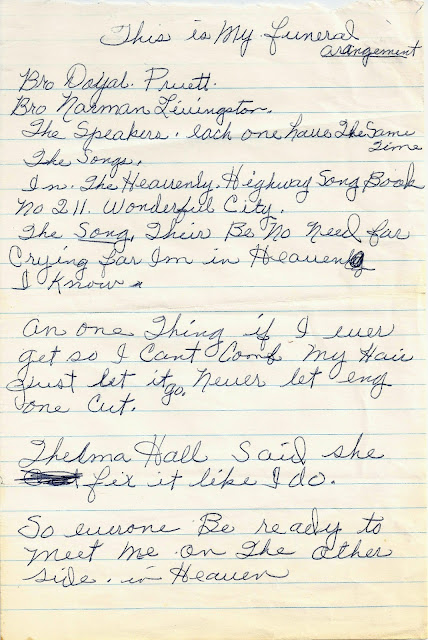 This is My Funeral
arangement
Bro Doyal. Pruett.
Bro Narman Livingston.
The Speakers. each one have The Same
Time
The Songs.
In. The Heavenly. Highway Song Book
No 211. Wonderful City.
The Song, Their Be No Need far
Crying far Im in Heaven
I Know.
An one Thing if I ever
get so I Cant Comb My Hair
Just let it go. Never let eny
one Cut.
Thelma Hall Said she
fix it like I do.
So eurone Be ready to
meet me on The other
side. in Heaven